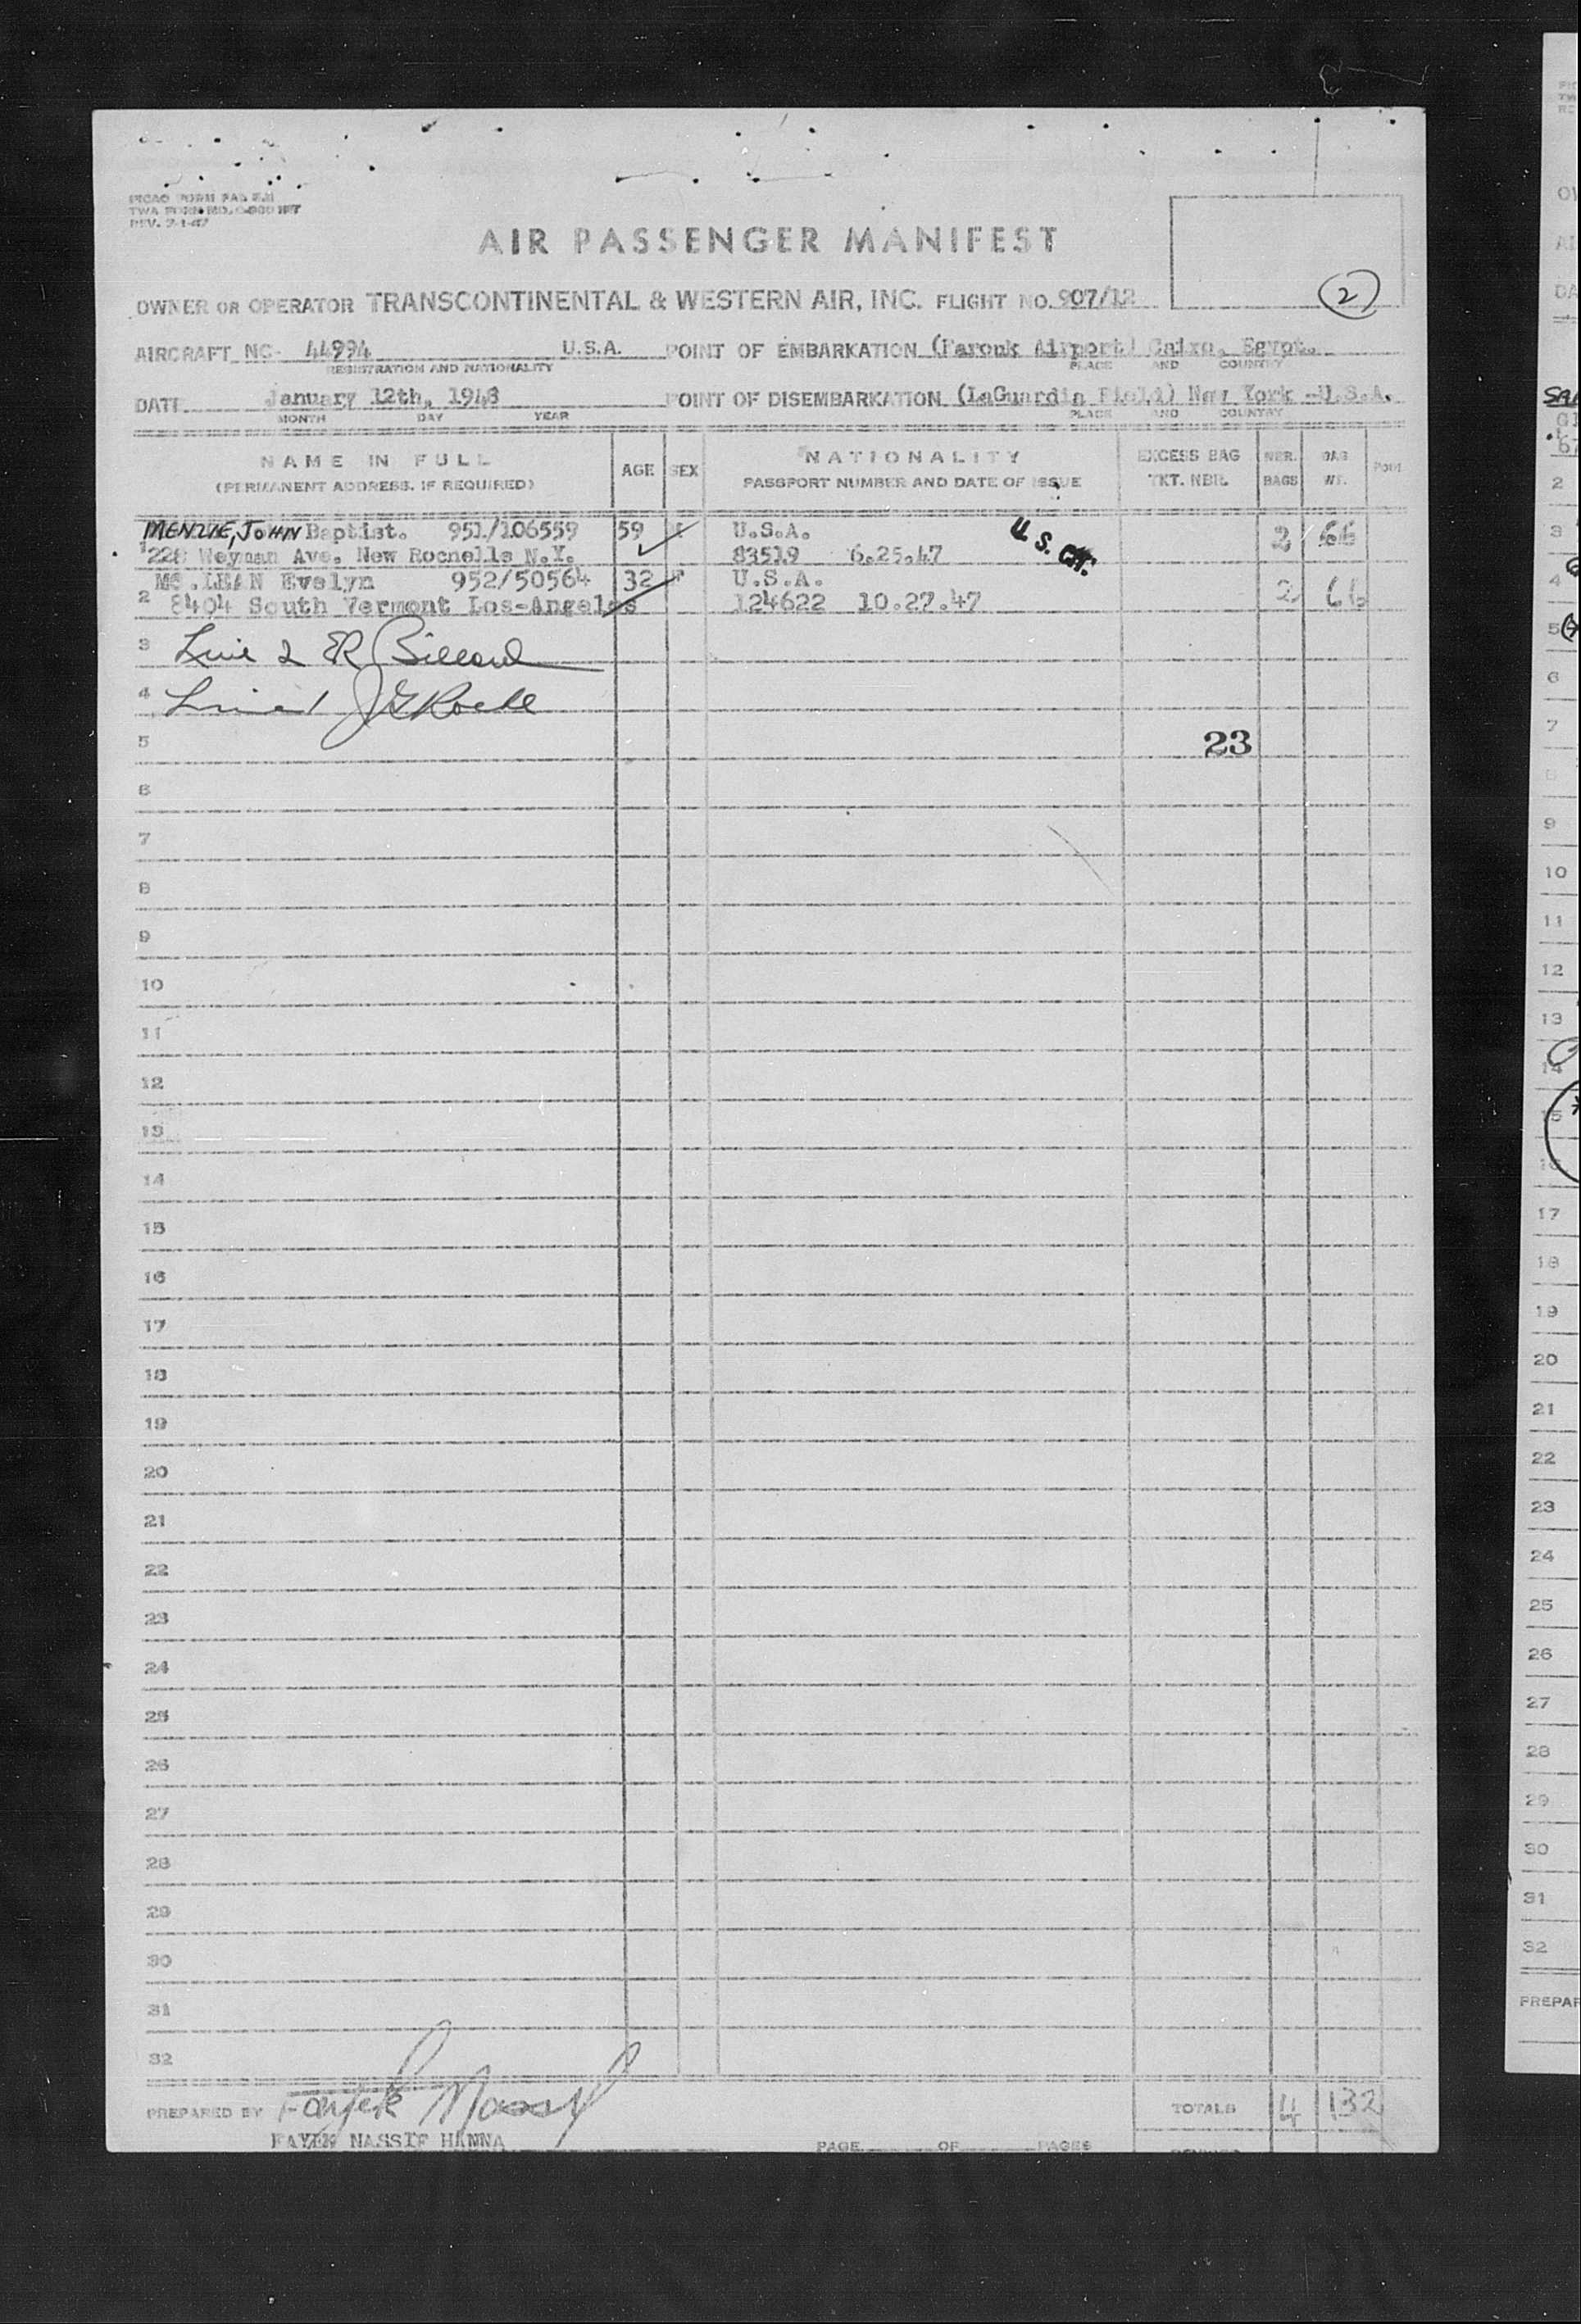 PICAO FORM PAS
TWA FORM NO.
REV. 7-1-47
AIR PASSENGER MANIFEST
OWNER OR OPERATOR TRANSCONTINENTAL & WESTERN AIR, INC. FLIGHT NO. 907/12
2
AIRCRAFT NC- 44994 U.S.A. POINT OF EMBARKATION (Farouk Airport) Cairo, Egypt.
REGISTRATION AND NATIONALITY PLACE AND COUNTRY
DATE January 12th, 1948 POINT OF DISEMBARKATION (LaGuardia Field) New York -U.S.A.
MONTH DAY YEAR PLACE AND COUNTRY
NAME IN FULL AGE SEX NATIONALITY EXCESS BAG NBR. BAG
(PERMANENT ADDRESS, IF REQUIRED) PASSPORT NUMBER AND DATE OF ISSUE TKT. NBR. BAGS WT.
MENZIE, JOHN Baptist. 951/106559 59 U.S.A. U.S. Cit. 2 66
1 228 Weyman Ave. New Rochelle N.Y. 83519 6.25.47
Evelyn 952/50564 32 F U.S.A. 2 66
2 8404 South Vermont Los-Angeles 124622 10.27.47
3 Line 2 ER
4 Line 1
5 23
6
7
8
9
10
11
12
13
14
15
16
17
18
19
20
21
22
23
24
25
26
27
28
29
30
31
32
PREPARED BY TOTALS 4 132
FAYEK NASSIF HANNA
PAGE OF PAGES
2
3
4
5
6
7
9
10
11
12
13
14
15
17
18
19
20
21
22
23
24
25
26
27
28
29
30
31
32